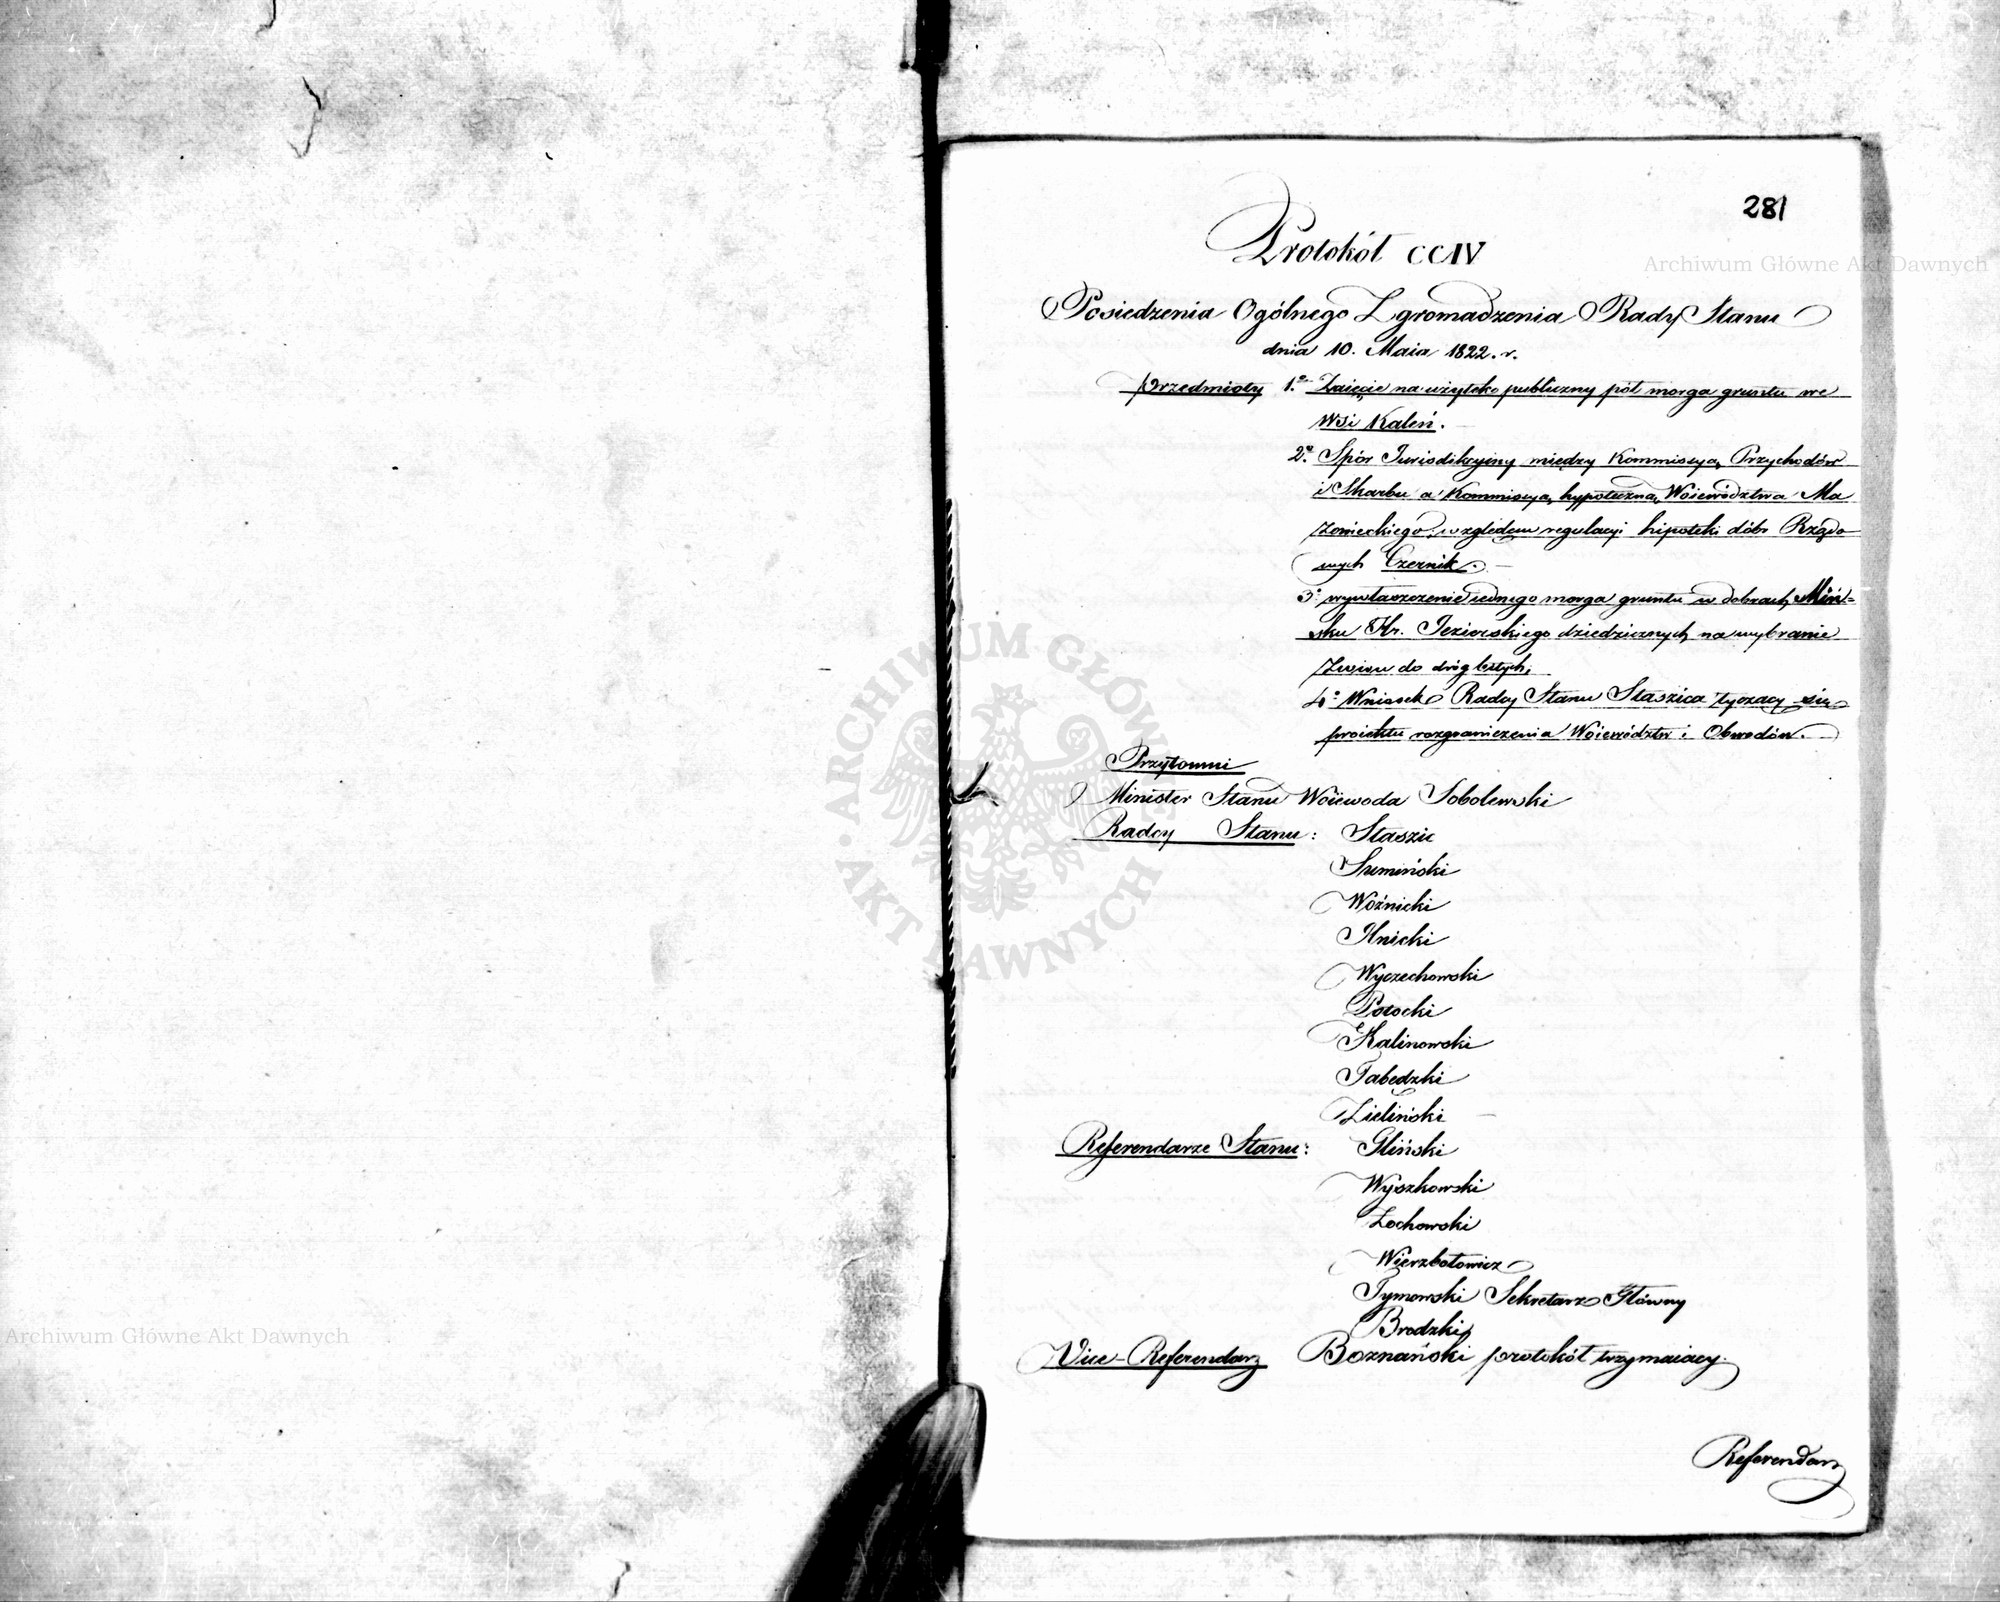 281
Protokół CCIV
Archiwum Główne Akt Dawnych
Posiedzenia Ogólnego Zgromadzenia Rady Stanu
dnia 10. Maia 1822. r.
przedmioty 1.º Zaięcie na użytek publiczny pół morga gruntu we
Wsi Kaleń.
2.º Spór Jurisdikcyiny między Kommissyą Przychodów
i Skarbu a Kommissyą hypoteczną Woiewództwa Ma
zowieckiego, względem regulacyi hipoteki dóbr Rządo
wych Czernik.
3º wywłaszczenie iednego morga gruntu w dobrach Miń-
sku Hr. Jezierskiego dziedzicznych, na wybranie
Żwiru do dróg bitych,
4º Wniosek Radcy Stanu Staszica tyczący się
proiektu rozgraniczenia Woiewództw i Obwodów.
Przytomni
Minister Stanu Woiewoda Sobolewski
Radcy Stanu: Staszic
Sumiński
Woźnicki
Ilnicki
Wyczechowski
Potocki
Kalinowski
Tabędzki
Zieliński
Referendarze Stanu: Gliński
Wyszkowski
Żochowski
Wierzbołowicz
Tymowski Sekretarz Główny
Brodzki
Vice-Referendarz Boznański protokół trzymaiący.
Referendarz
Archiwum Główne Akt Dawnych
ARCHIWUM GŁÓWNE · AKT DAWNYCH ·